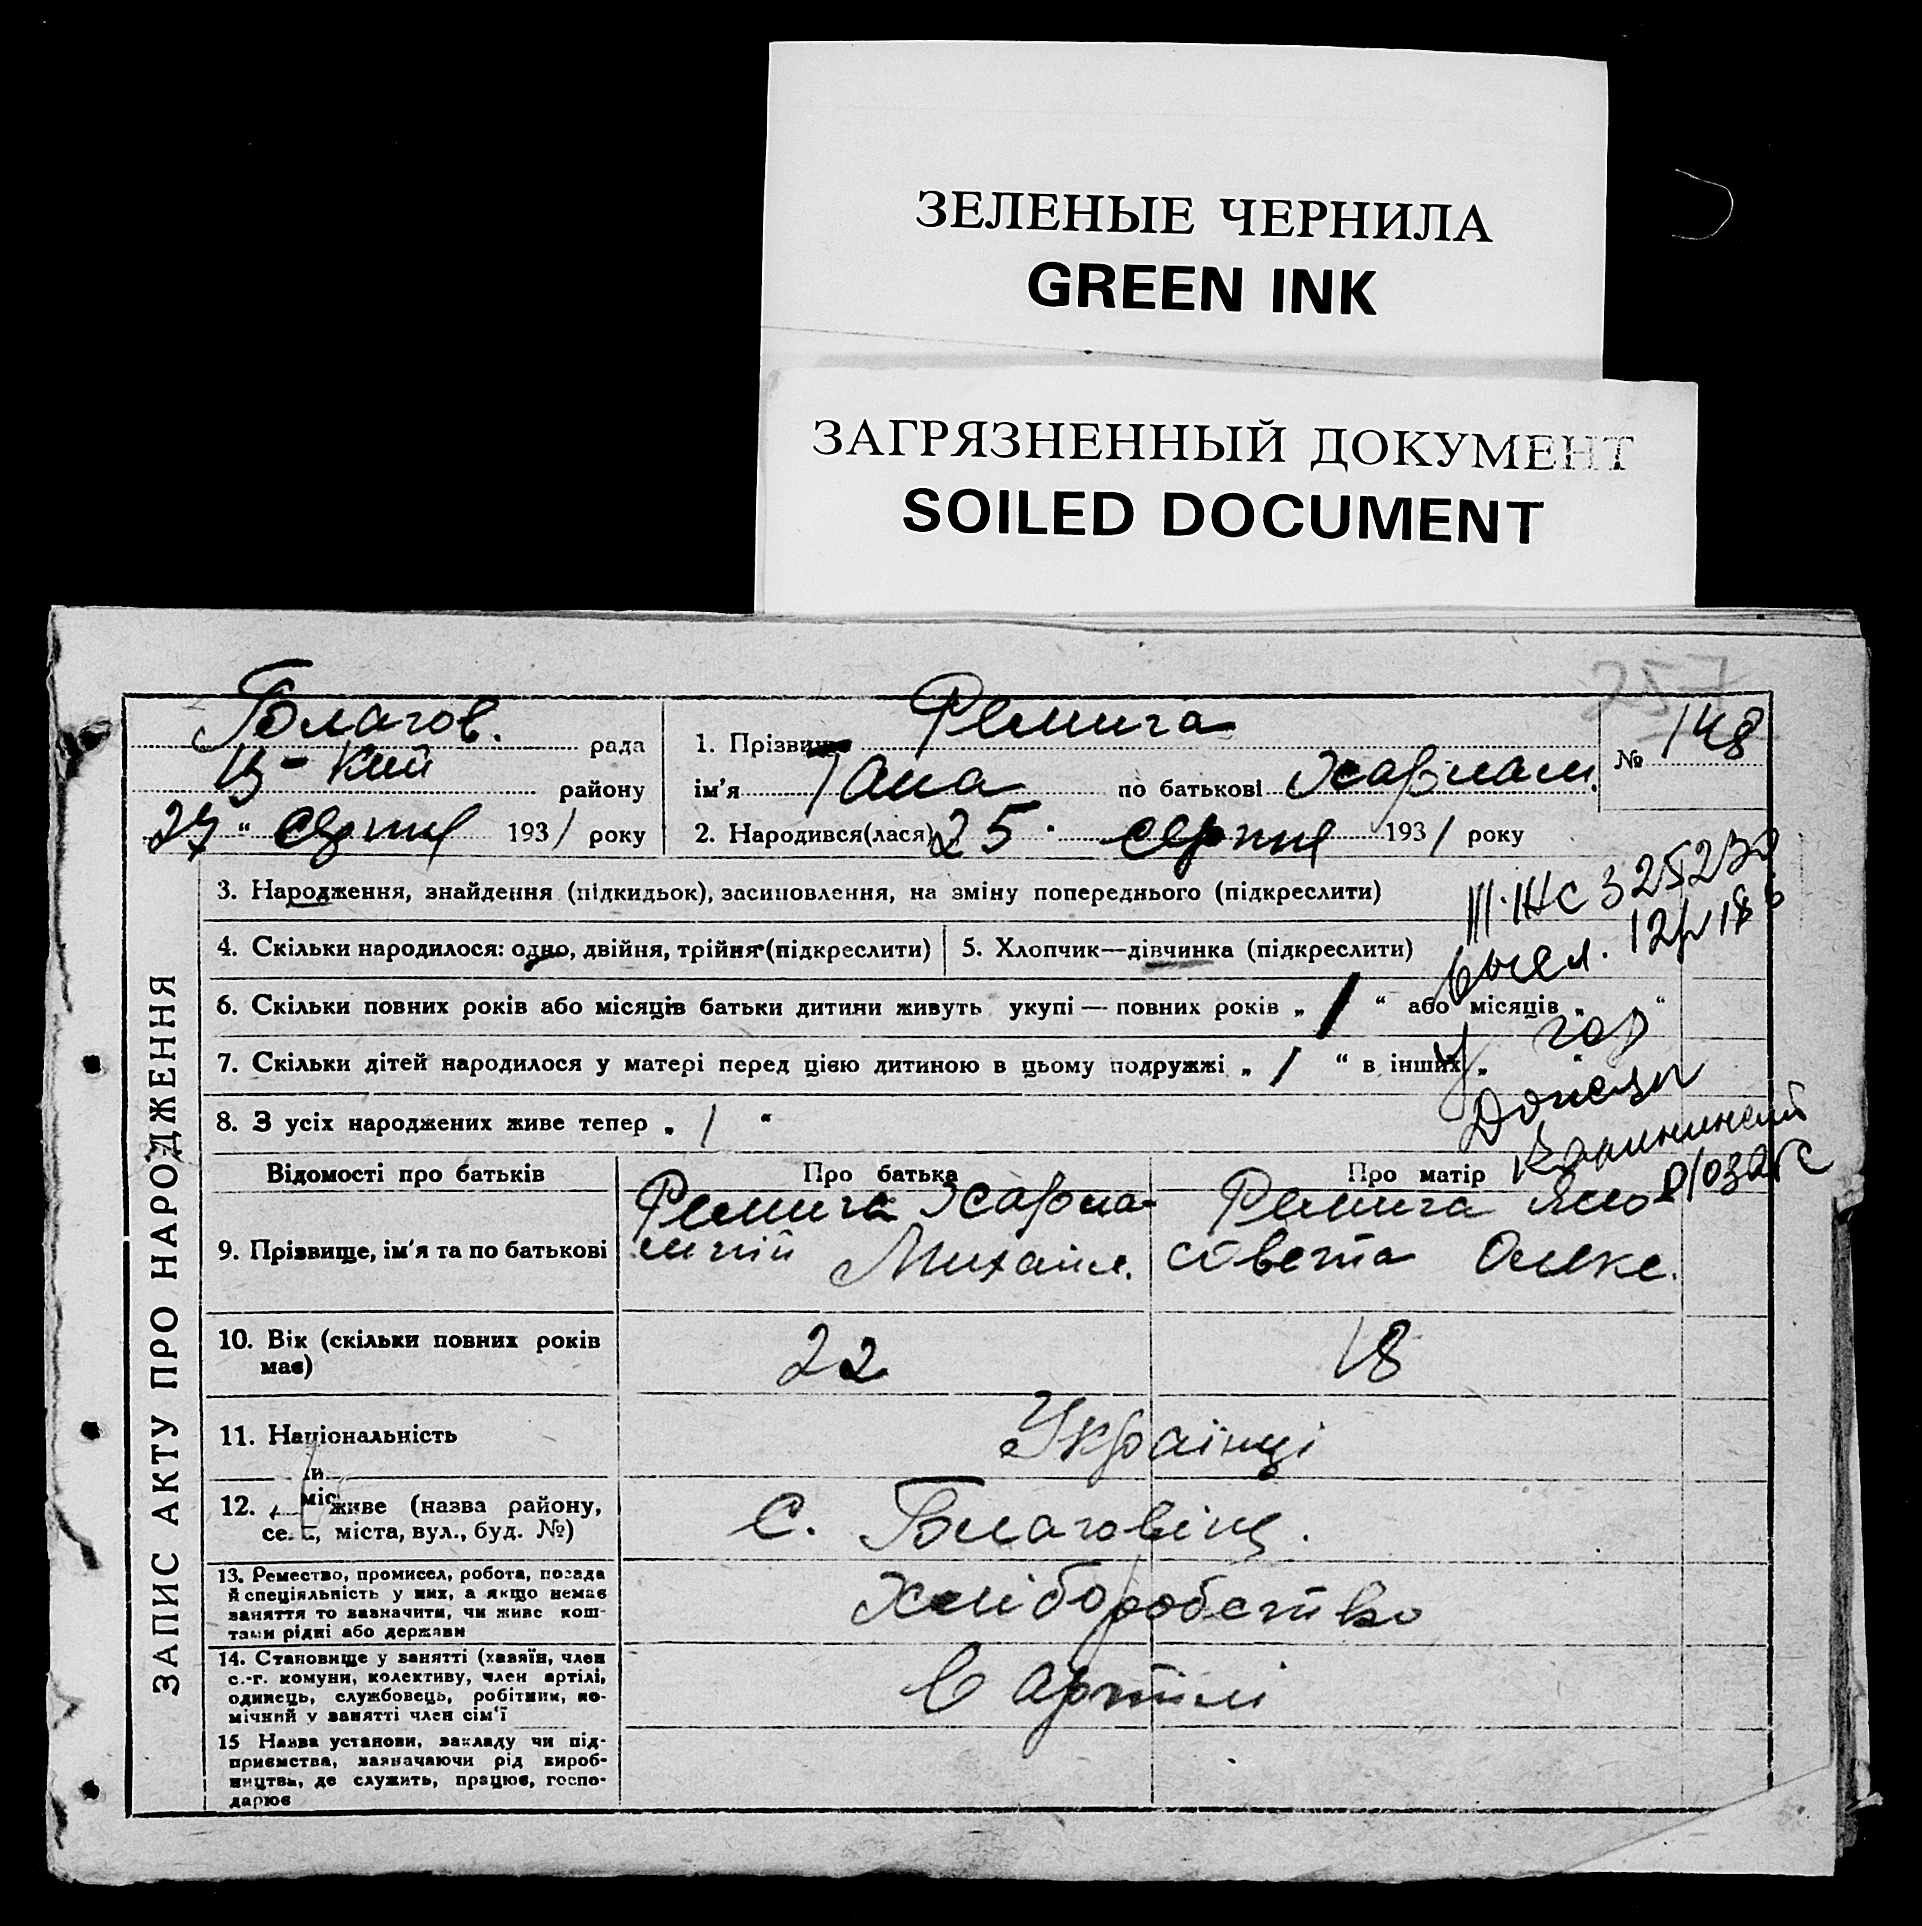 ЗЕЛЕНЫЕ ЧЕРНИЛА
GREEN INK
ЗАГРЯЗНЕННЫЙ ДОКУМЕНТ
SOILED DOCUMENT
257
ЗАПИС АКТУ ПРО НАРОДЖЕННЯ
Благов. рада
Ц-кий району
27 “ серпня 1931 року
1. Прізвище Ремига
ім'я Гана по батькові Харлам.
№ 148
2. Народився(лася) 25 серпня 1931 року
3. Народження, знайдення (підкидьок), засиновлення, на зміну попереднього (підкреслити)
4. Скільки народилося: одно, двійня, трійня (підкреслити)
5. Хлопчик—дівчинка (підкреслити)
6. Скільки повних років або місяців батьки дитини живуть укупі — повних років „ 1 “ або місяців „ “
7. Скільки дітей народилося у матері перед цією дитиною в цьому подружжі „ 1 “ в інших „
8. З усіх народжених живе тепер „ 1 “
III-ЖС
гор
Донецк
Відомості про батьків
Про батька
Про матір
9. Прізвище, ім'я та по батькові
Ремига Харлампій Михайл.
Ремига Олекс.
10. Вік (скільки повних років має)
22
18
11. Національність
Українці
12. живе (назва району,
міста, вул., буд. №)
с. Благовіщ.
13. Ремество, промисел, робота, посада
й спеціяльність у них, а якщо немає
заняття то зазначити, чи живе кош-
тами рідні або держави
Хліборобство
14. Становище у занятті (хазяїн, член
с.-г. комуни, колективу, член артілі,
одинець, службовець, робітник, по-
мічний у занятті член сім'ї
в артілі
15 Назва установи, закладу чи під-
приємства, зазначаючи рід вироб-
ництва, де служить, працює, госпо-
дарює